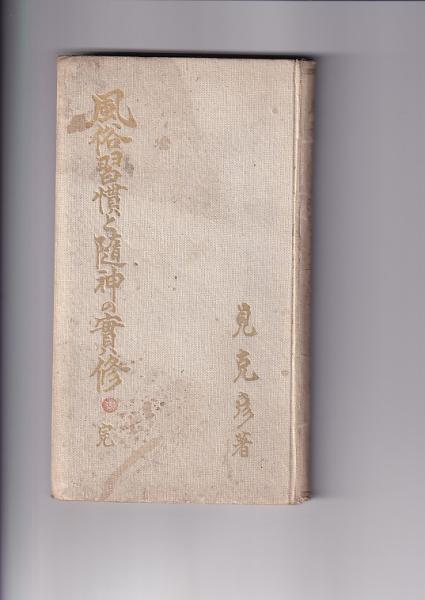 見克彦著
風俗習慣と随神の實修
完